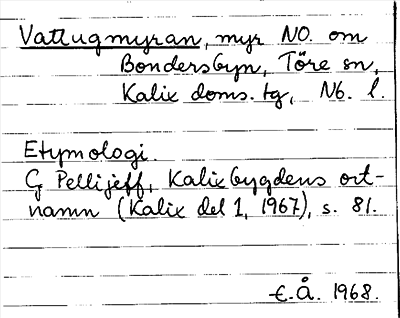 Vattugmyran, myr NO. om
Bondersbyn, Töre sn,
Kalix doms. tg, Nb. l.
Etymologi.
G Pellijeff, Kalixbygdens ort-
namn (Kalix del 1, 1967), s. 81.
E.Å. 1968.